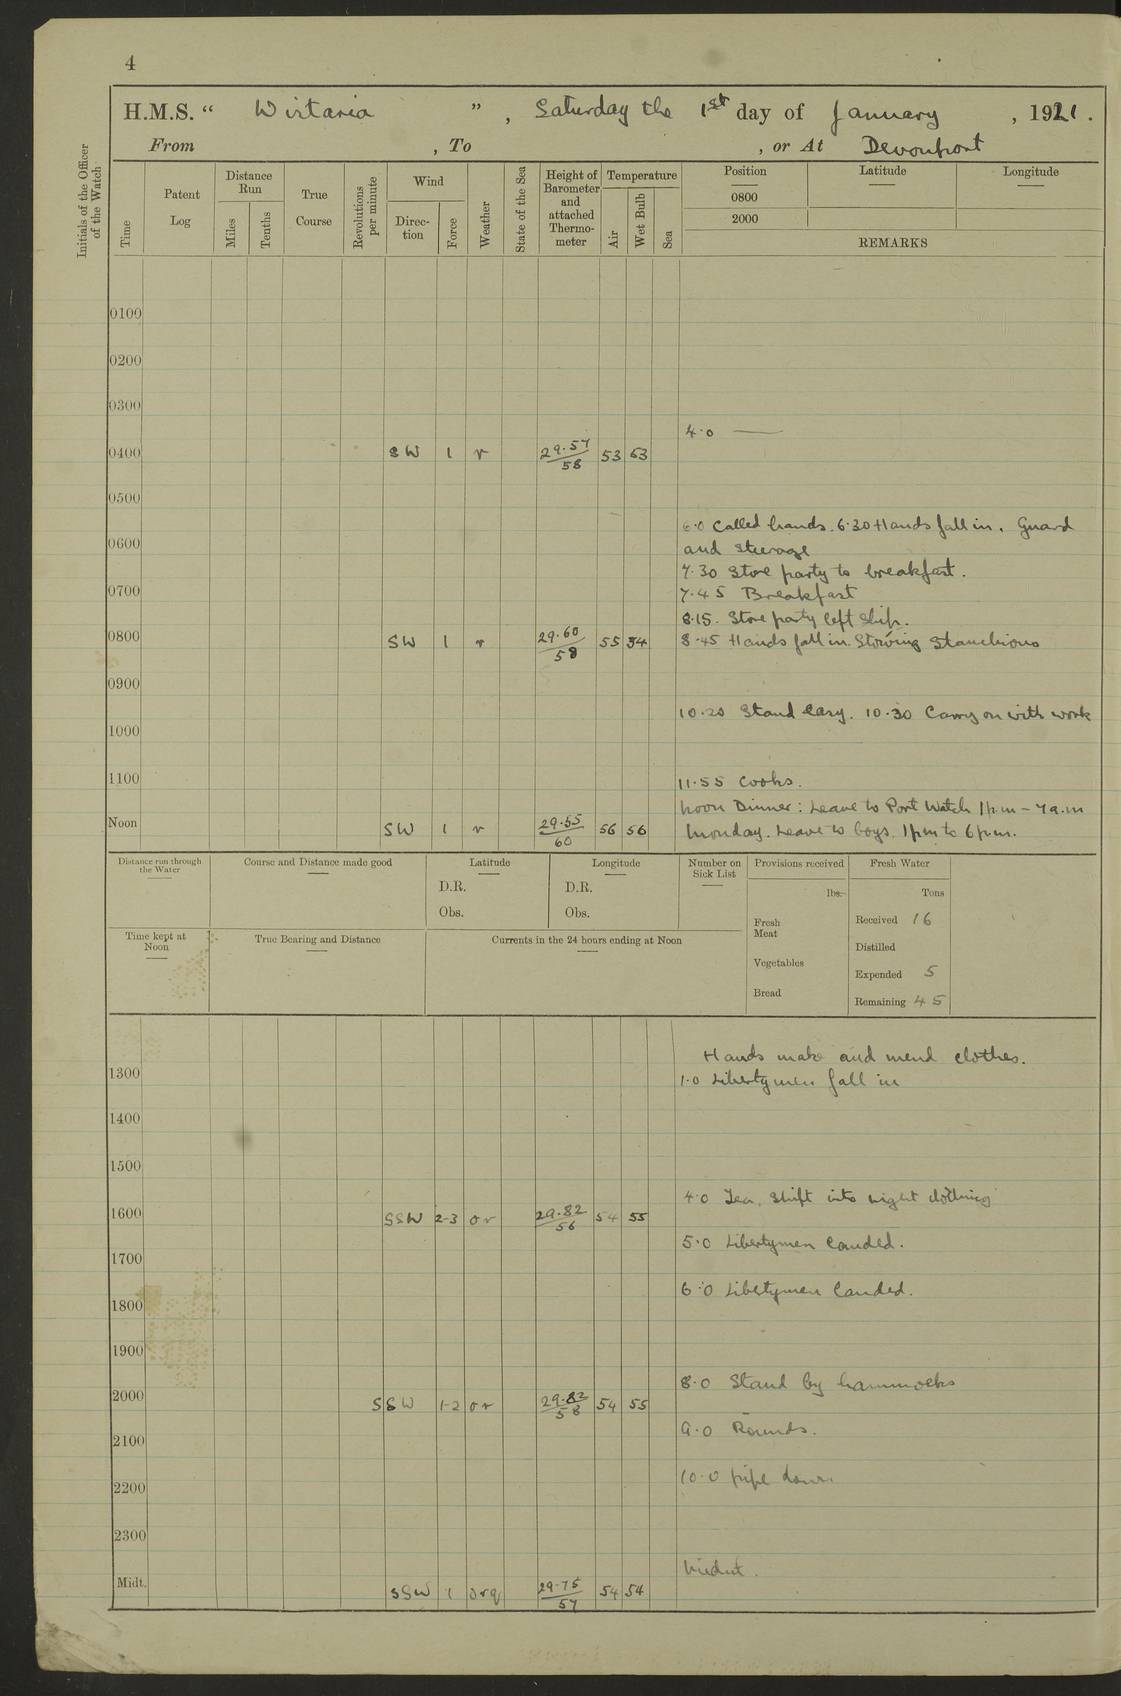 4
H.M.S. “ Wistaria ” , Saturday the 1st day of January , 1921 .
From , To , or At Devonport
Initials of the Officer of the Watch
Time
Patent Log
Distance Run
Miles
Tenths
True Course
Revolutions per minute
Wind
Direction
Force
Weather
State of the Sea
Height of Barometer and attached Thermometer
Temperature
Air
Wet Bulb
Sea
Position
Latitude
Longitude
0800
2000
REMARKS
0100
0200
0300
4.0 —
0400 SW 1 r 29.57/58 53 53
0500
6.0 Called hands. 6.30 Hands fall in. Guard
0600
and steerage
7.30 Store party to breakfast.
0700
7.45 Breakfast
8.15. Store party left ship.
0800 SW 1 r 29.60/58 55 54 8.45 Hands fall in. Stowing Stanchions
0900
10.20 Stand Easy. 10.30 Carry on with work
1000
1100
11.55 Cooks.
Noon Dinner: Leave to Port Watch 1 p.m – 7 a.m
Noon SW 1 r 29.55/60 56 56 Monday. Leave to boys, 1 pm to 6 p.m.
Distance run through the Water
Course and Distance made good
Latitude
D.R.
Obs.
Longitude
D.R.
Obs.
Number on Sick List
Provisions received
lbs.
Fresh Meat
Vegetables
Bread
Fresh Water
Tons
Received 16
Distilled
Expended 5
Remaining 45
Time kept at Noon
True Bearing and Distance
Currents in the 24 hours ending at Noon
Hands make and mend clothes.
1300
1.0 Libertymen fall in
1400
1500
4.0 Tea, Shift into night clothing
1600 SSW 2-3 or 29.82/56 54 55
5.0 Libertymen landed.
1700
6.0 Libertymen landed.
1800
1900
8.0 Stand by hammocks
2000 SSW 1-2 or 29.82/58 54 55
9.0 Rounds.
2100
10.0 pipe down
2200
2300
Midnt.
Midt. SSW 1 orq 29.75/57 54 54